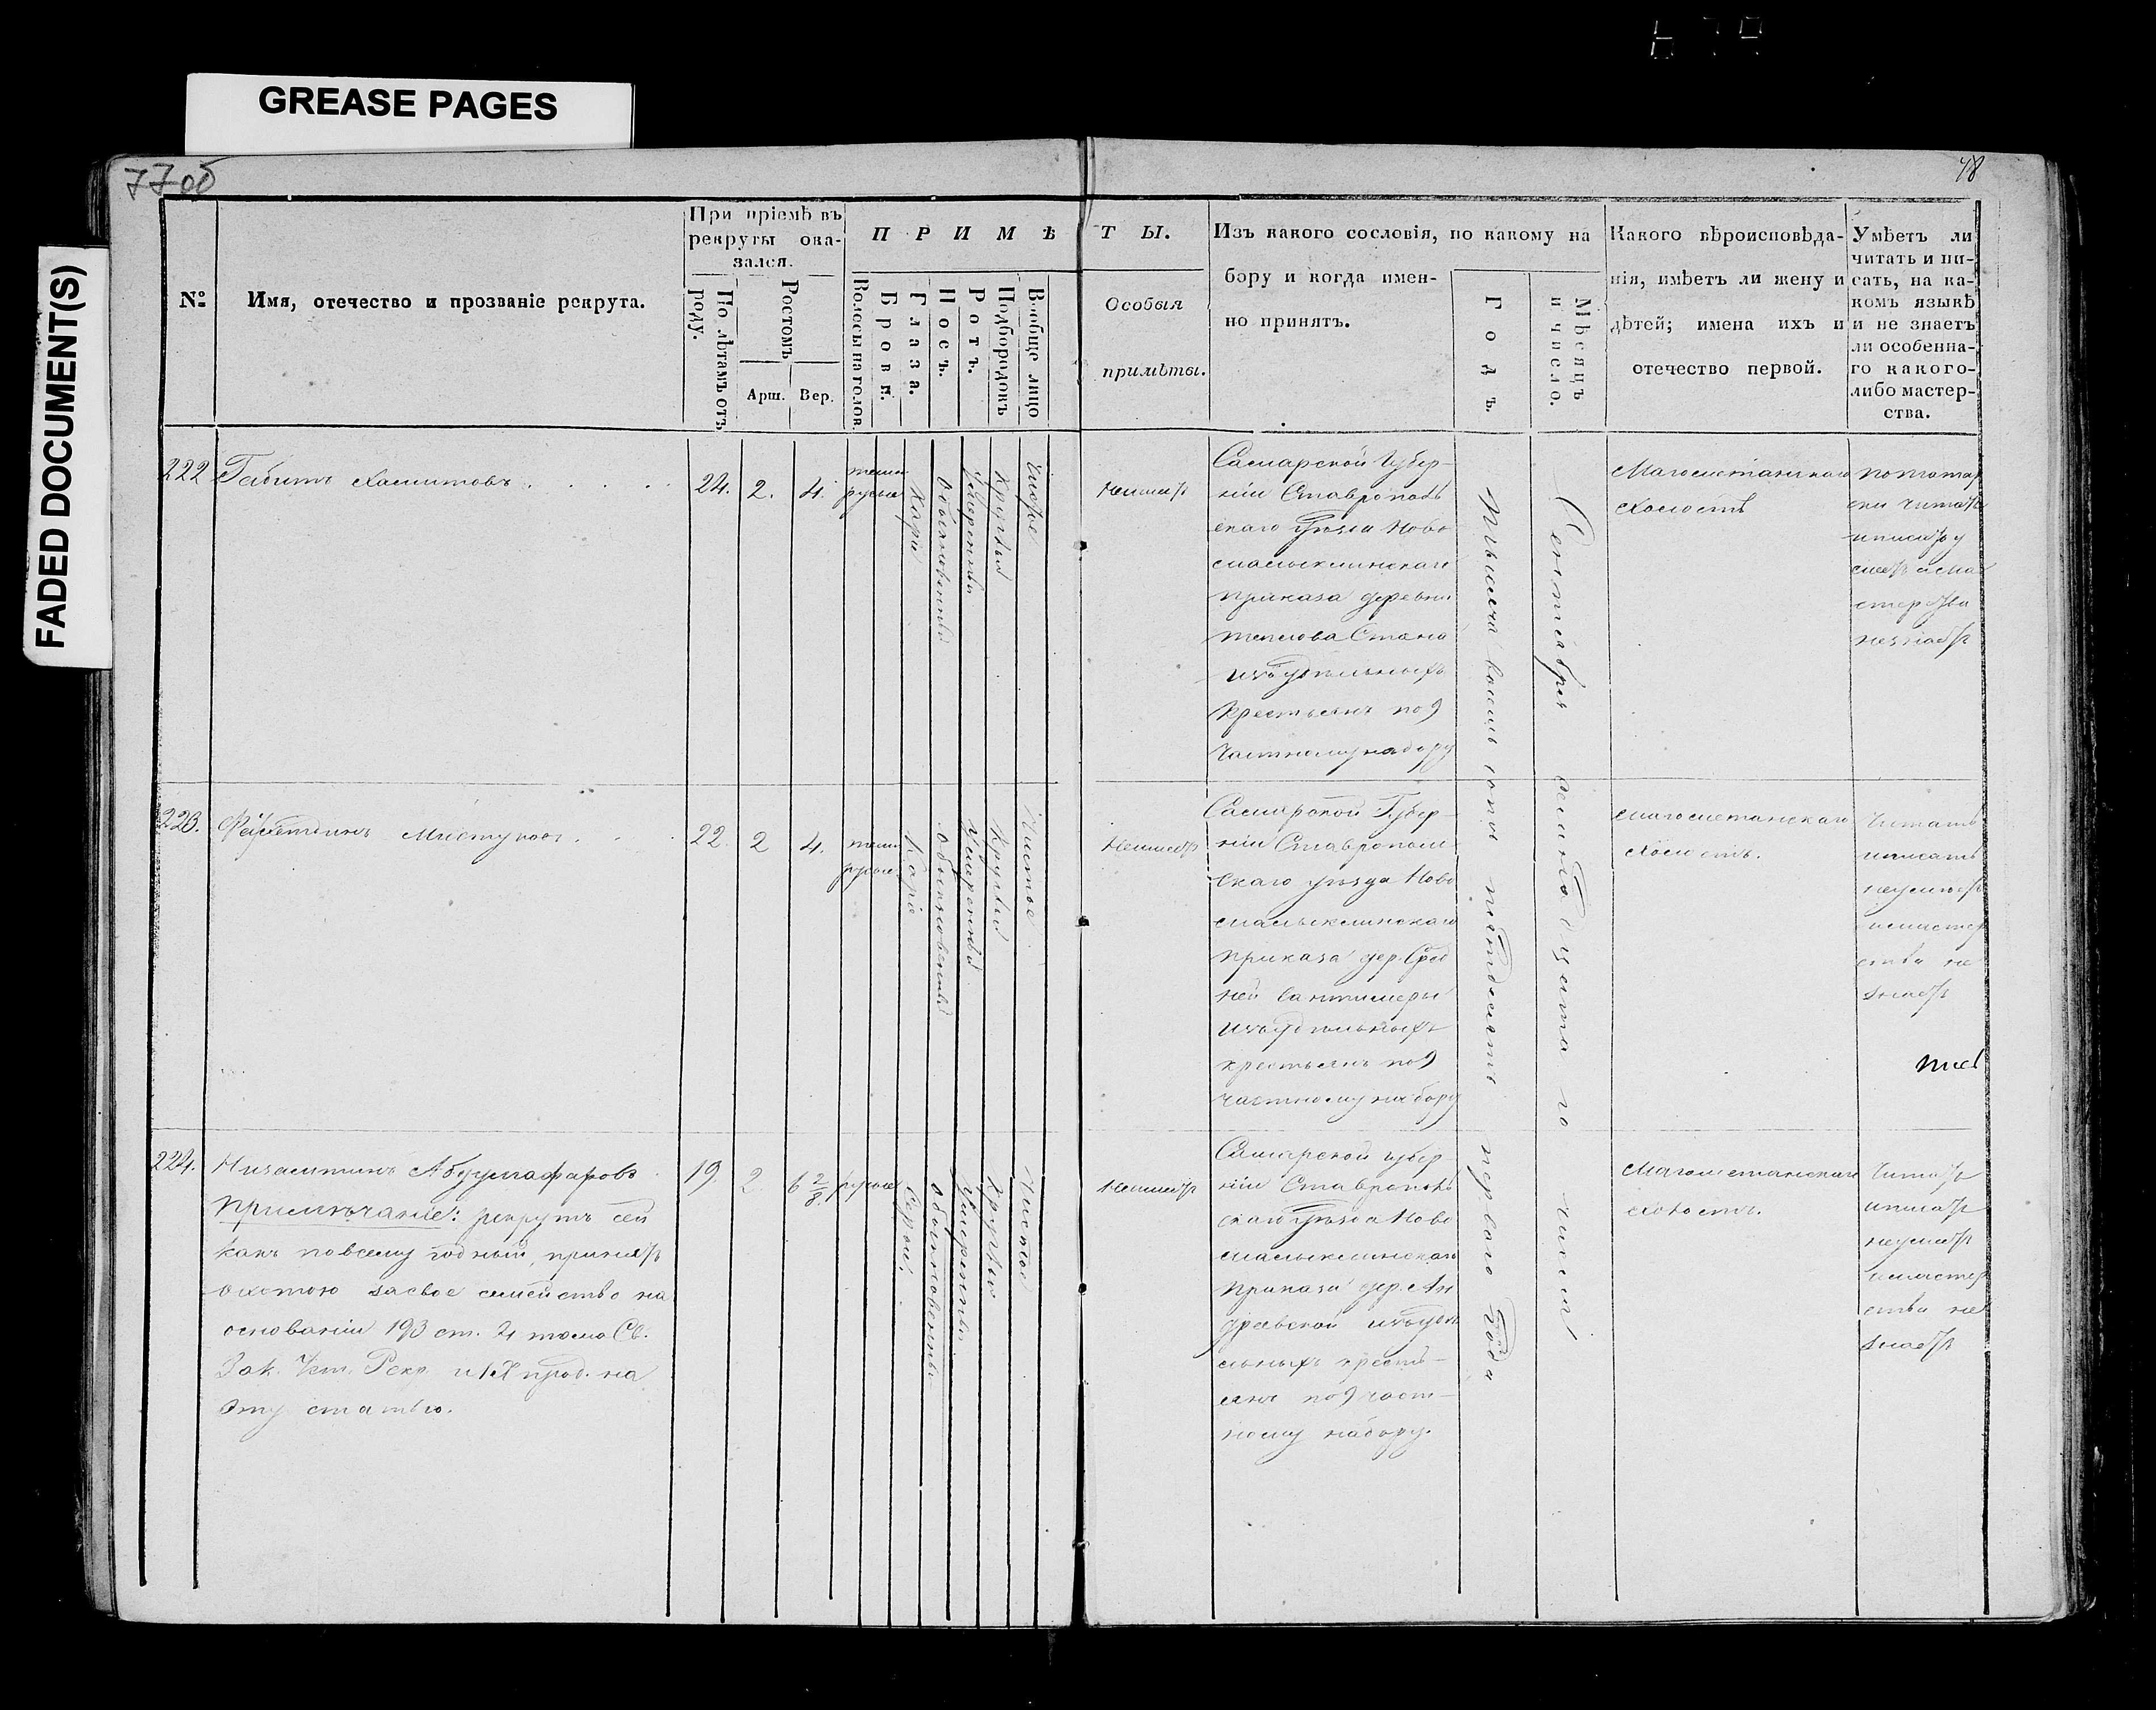 GREASE PAGES
FADED DOCUMENT(S)
77об
78
№
Имя, отечество и прозваніе рекрута.
При пріемѣ въ
рекруты ока-
зался.
По лѣтамъ отъ
роду.
Ростомъ
Арш.
Вер.
ПРИМѢ
Волосы на голов.
Брови.
Глаза.
Носъ.
Ротъ.
Подбородокъ
Вообще лицо
ТЫ.
Особыя
примѣты.
Изъ какого сословія, по какому на
бору и когда имен-
но принятъ.
Годъ.
Мѣсяцъ
и число.
Какого вѣроисповѣда-
нія, имѣетъ ли жену и
дѣтей; имена ихъ и
отечество первой.
Умѣетъ ли
читать и пи-
сать, на ка-
комъ языкѣ
и не знаетъ
ли особенна-
го какого-
либо мастер-
ства.
222
Габитъ Хамитовъ
24.
2.
4.
темно
русые
Каріе
Обыкновенный
Умеренный
Круглый
Чистое
Неимеетъ
Самарской Губер-
ніи Ставрополь
скаго уѣзда Ново
малыклинскаго
приказа деревни
изъ удѣльныхъ
крестьянъ по 9
частному набору
Тысяча восемь сотъ пятьдесятъ перваго года
Сентября семнадцатаго числа
Магометанскаго
Холостъ
по татар
ски читаетъ
и пишетъ у
мастерства
незнаетъ
223.
22.
2
4.
темно
русые
Каріе
Обыкновенный
Умеренный
Круглый
Чистое
Неимеетъ
Самарской Губер-
ніи Ставрополь
скаго уѣзда Ново
малыклинскаго
приказа дер. Сред
ней Сантимеры
изъ удѣльныхъ
крестьянъ по 9
частному набору
магометанскаго
холостъ.
Читать
и писать
неумеетъ
и мастер
ства не
знаетъ
224.
Низамитинъ Абдулгафаровъ
Примѣчаніе: рекрутъ сей
какъ повсему годный, принятъ
охотою за свое семейство на
основаніи 193 ст. 4 тома Св.
Зак. Уст. Рекр. и IX прод. на
эту статью.
19.
2
6 2/8
русые
Серые.
Обыкновенный
Умеренный
Круглый
Чистое
Неимеетъ
Самарской губер-
ніи Ставрополь
скаго уѣзда Ново
малыклинскаго
приказа дер. Ан
дреевской изъ удѣ
льныхъ кресть-
янъ по 9 част-
ному набору.
Магометанскаго
холостъ.
Читать
и писать
неумеетъ
и мастер
ства не
знаетъ